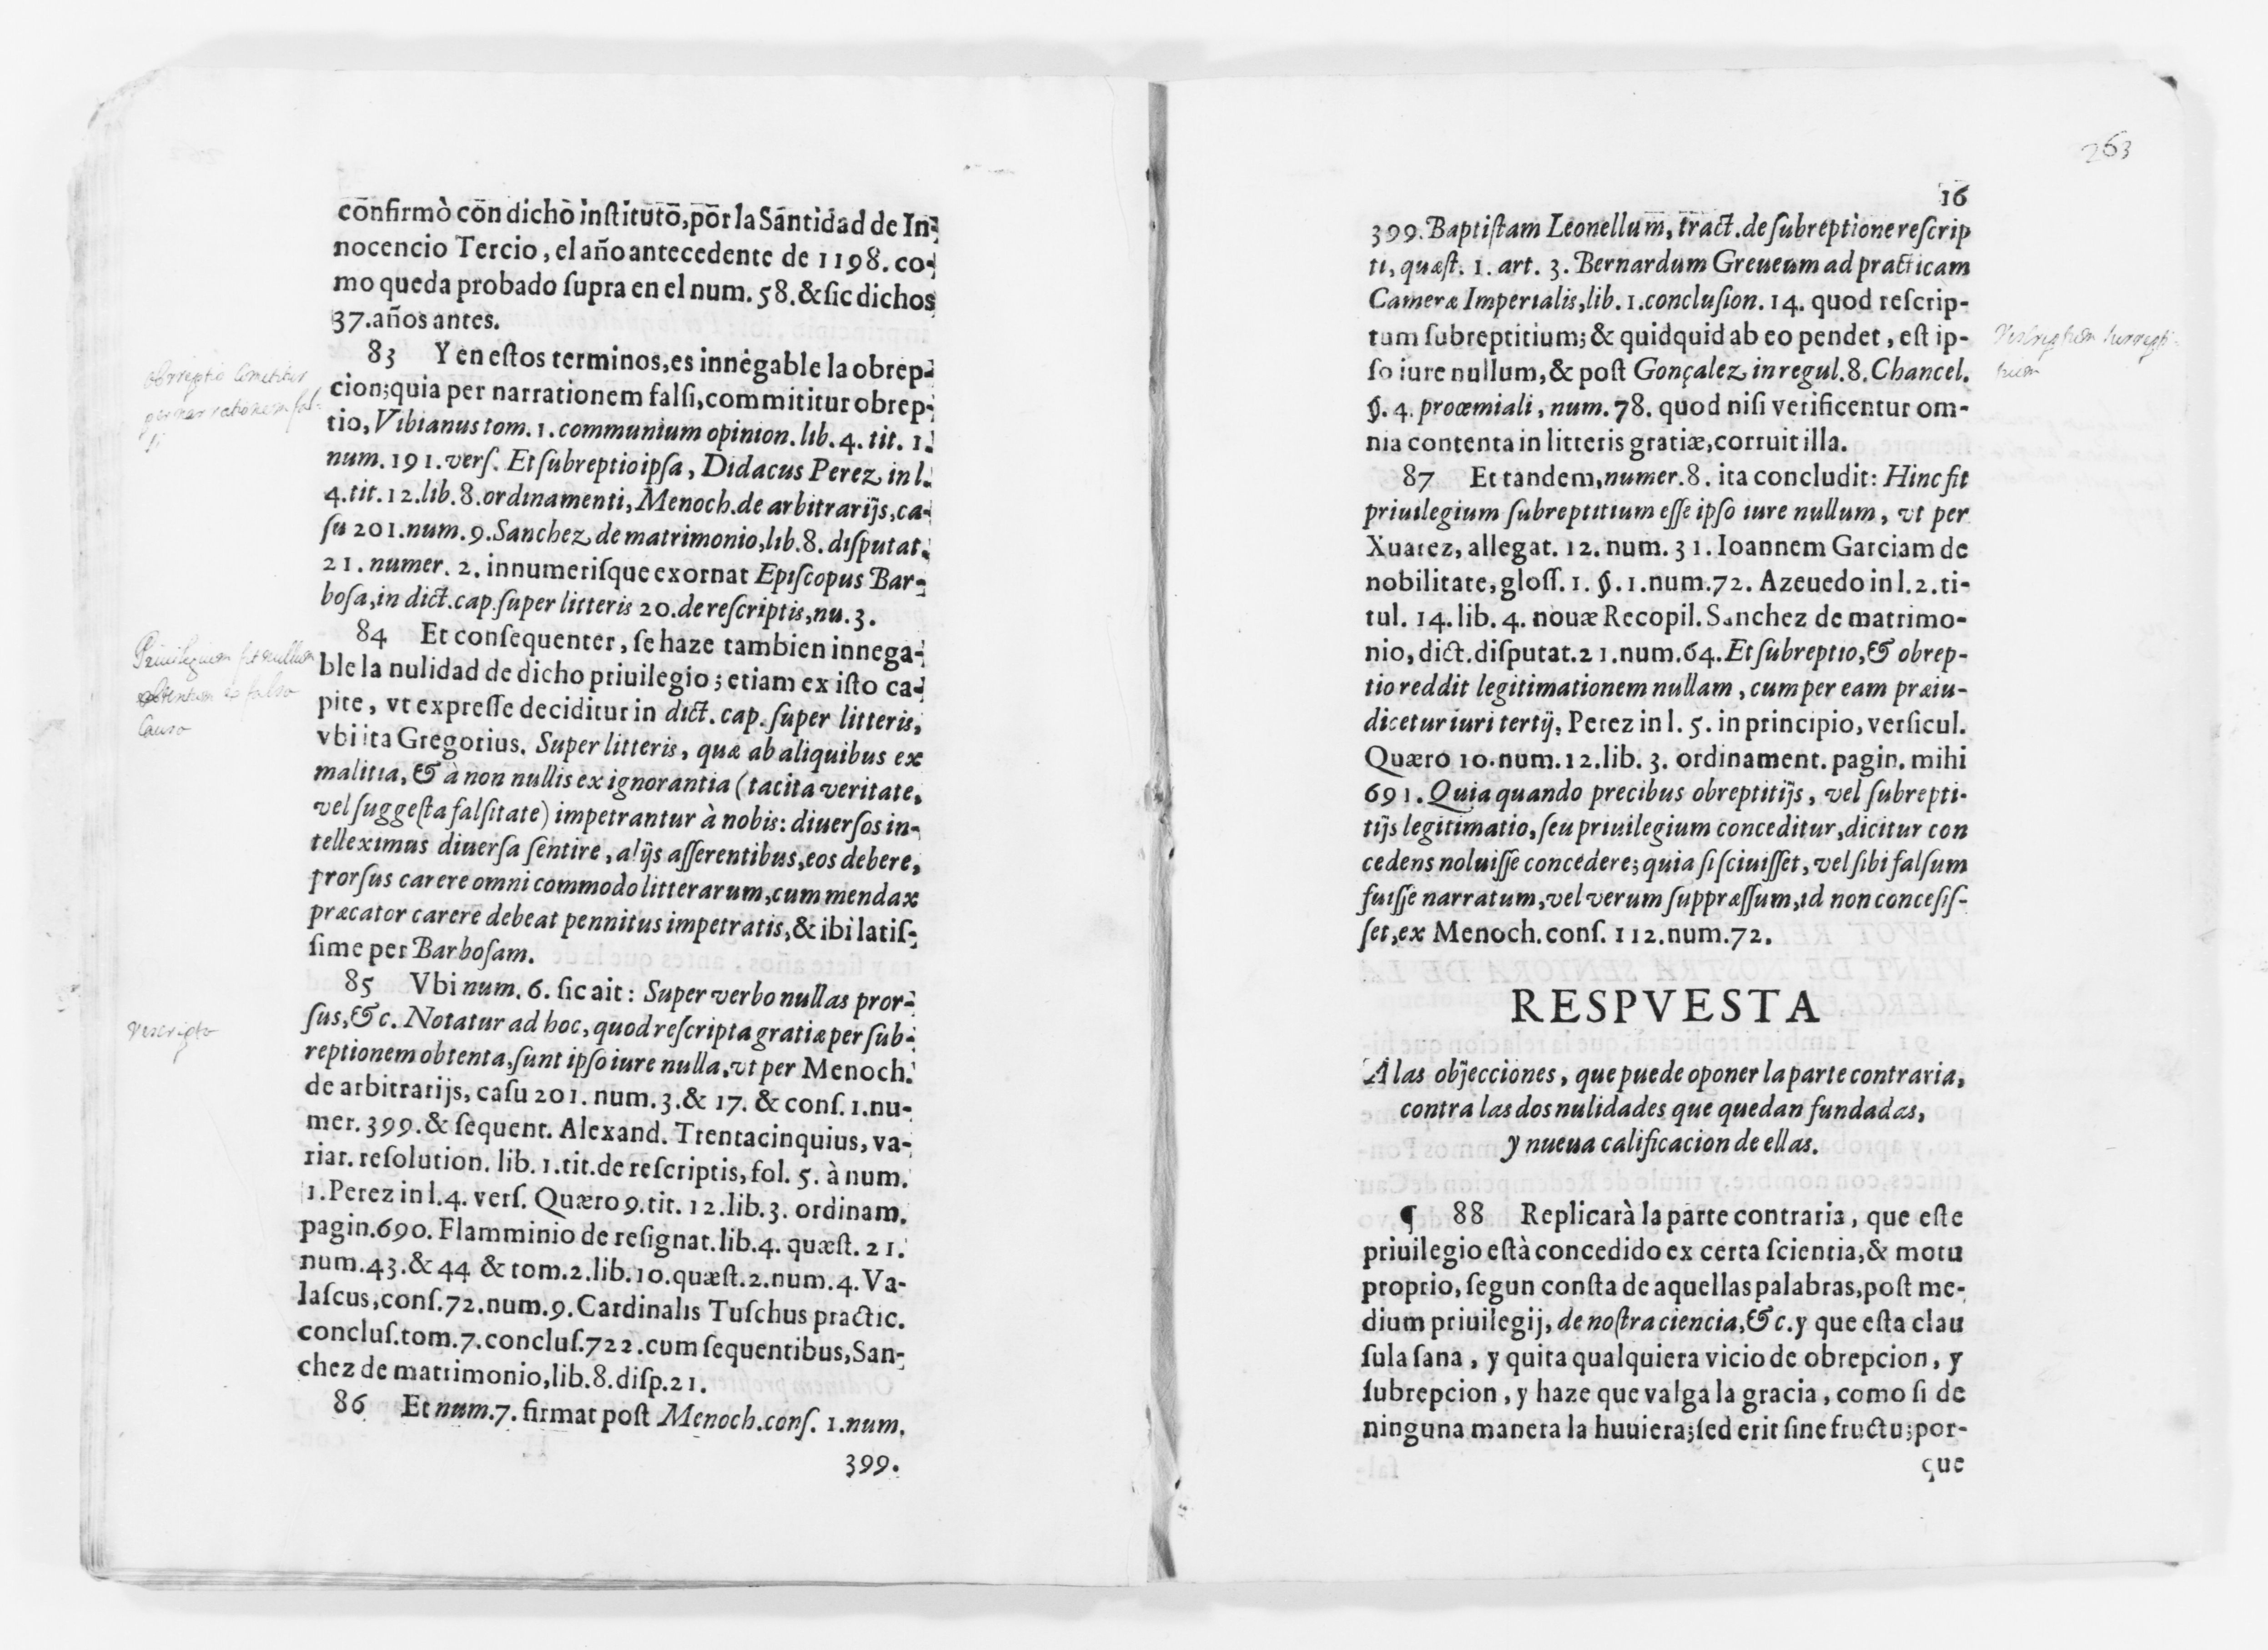 confirmò con dicho instituto, por la Santidad de In-
nocencio Tercio, el año antecedente de 1198. co-
mo queda probado supra en el num. 58. & sic dichos
37. años antes.
83 Y en estos terminos, es innegable la obrep-
cion; quia per narrationem falsi, commititur obrep-
tio, Vibianus tom. 1. communium opinion. lib. 4. tit. 1.
num. 191. vers. Et subreptio ipsa, Didacus Perez in l.
4. tit. 12. lib. 8. ordinamenti, Menoch. de arbitrarijs, ca-
su 201. num. 9. Sanchez de matrimonio, lib. 8. disputat.
21. numer. 2. innumerisque exornat Episcopus Bar-
bosa, in dict. cap. super litteris 20. de rescriptis, nu. 3.
84 Et consequenter, se haze tambien innega-
ble la nulidad de dicho priuilegio; etiam ex isto ca-
pite, vt expresse deciditur in dict. cap. super litteris,
vbi ita Gregorius. Super litteris, quæ ab aliquibus ex
malitia, & à non nullis ex ignorantia (tacita veritate,
vel suggesta falsitate) impetrantur à nobis: diuersos in-
telleximus diuersa sentire, alijs asserentibus, eos debere,
prorsus carere omni commodo litterarum, cum mendax
præcator carere debeat pennitus impetratis, & ibi latis-
sime per Barbosam.
85 Vbi num. 6. sic ait: Super verbo nullas pror-
sus, &c. Notatur ad hoc, quod rescripta gratiæ per sub-
reptionem obtenta, sunt ipso iure nulla, vt per Menoch.
de arbitrarijs, casu 201. num. 3. & 17. & cons. 1. nu-
mer. 399. & sequent. Alexand. Trentacinquius, va-
riar. resolution. lib. 1. tit. de rescriptis, fol. 5. à num.
1. Perez in l. 4. vers. Quæro 9. tit. 12. lib. 3. ordinam.
pagin. 690. Flamminio de resignat. lib. 4. quæst. 21.
num. 43. & 44 & tom. 2. lib. 10. quæst. 2. num. 4. Va-
lascus, cons. 72. num. 9. Cardinalis Tuschus practic.
conclus. tom. 7. conclus. 722. cum sequentibus, San-
chez de matrimonio, lib. 8. disp. 21.
86 Et num. 7. firmat post Menoch. cons. 1. num.
399.
obrreptio comititur
per narrationem fal-
si
Priuilegium fit nullum
obtentum ex falsa
causa
rescripto
263
16
399. Baptistam Leonellum, tract. de subreptione rescrip
ti, quæst. 1. art. 3. Bernardum Greueum ad practicam
Cameræ Imperialis, lib. 1. conclusion. 14. quod rescrip-
tum subreptitium; & quidquid ab eo pendet, est ip-
so iure nullum, & post Gonçalez in regul. 8. Chancel.
§. 4. proœmiali, num. 78. quod nisi verificentur om-
nia contenta in litteris gratiæ, corruit illa.
87 Et tandem, numer. 8. ita concludit: Hinc fit
priuilegium subreptitium esse ipso iure nullum, vt per
Xuarez, allegat. 12. num. 31. Ioannem Garciam de
nobilitate, gloss. 1. §. 1. num. 72. Azeuedo in l. 2. ti-
tul. 14. lib. 4. nouæ Recopil. Sanchez de matrimo-
nio, dict. disputat. 21. num. 64. Et subreptio, & obrep-
tio reddit legitimationem nullam, cum per eam præiu-
dicetur iuri tertij, Perez in l. 5. in principio, versicul.
Quæro 10. num. 12. lib. 3. ordinament. pagin. mihi
691. Quia quando precibus obreptitijs, vel subrepti-
tijs legitimatio, seu priuilegium conceditur, dicitur con
cedens noluisse concedere; quia si sciuisset, vel sibi falsum
fuisse narratum, vel verum suppræssum, id non concesis-
set, ex Menoch. cons. 112. num. 72.
RESPVESTA
A las objecciones, que puede oponer la parte contraria,
contra las dos nulidades que quedan fundadas,
y nueua calificacion de ellas.
¶ 88 Replicarà la parte contraria, que este
priuilegio està concedido ex certa scientia, & motu
proprio, segun consta de aquellas palabras, post me-
dium priuilegij, de nostra ciencia, &c. y que esta clau
sula sana, y quita qualquiera vicio de obrepcion, y
subrepcion, y haze que valga la gracia, como si de
ninguna manera la huuiera; sed erit sine fructu; por-
que